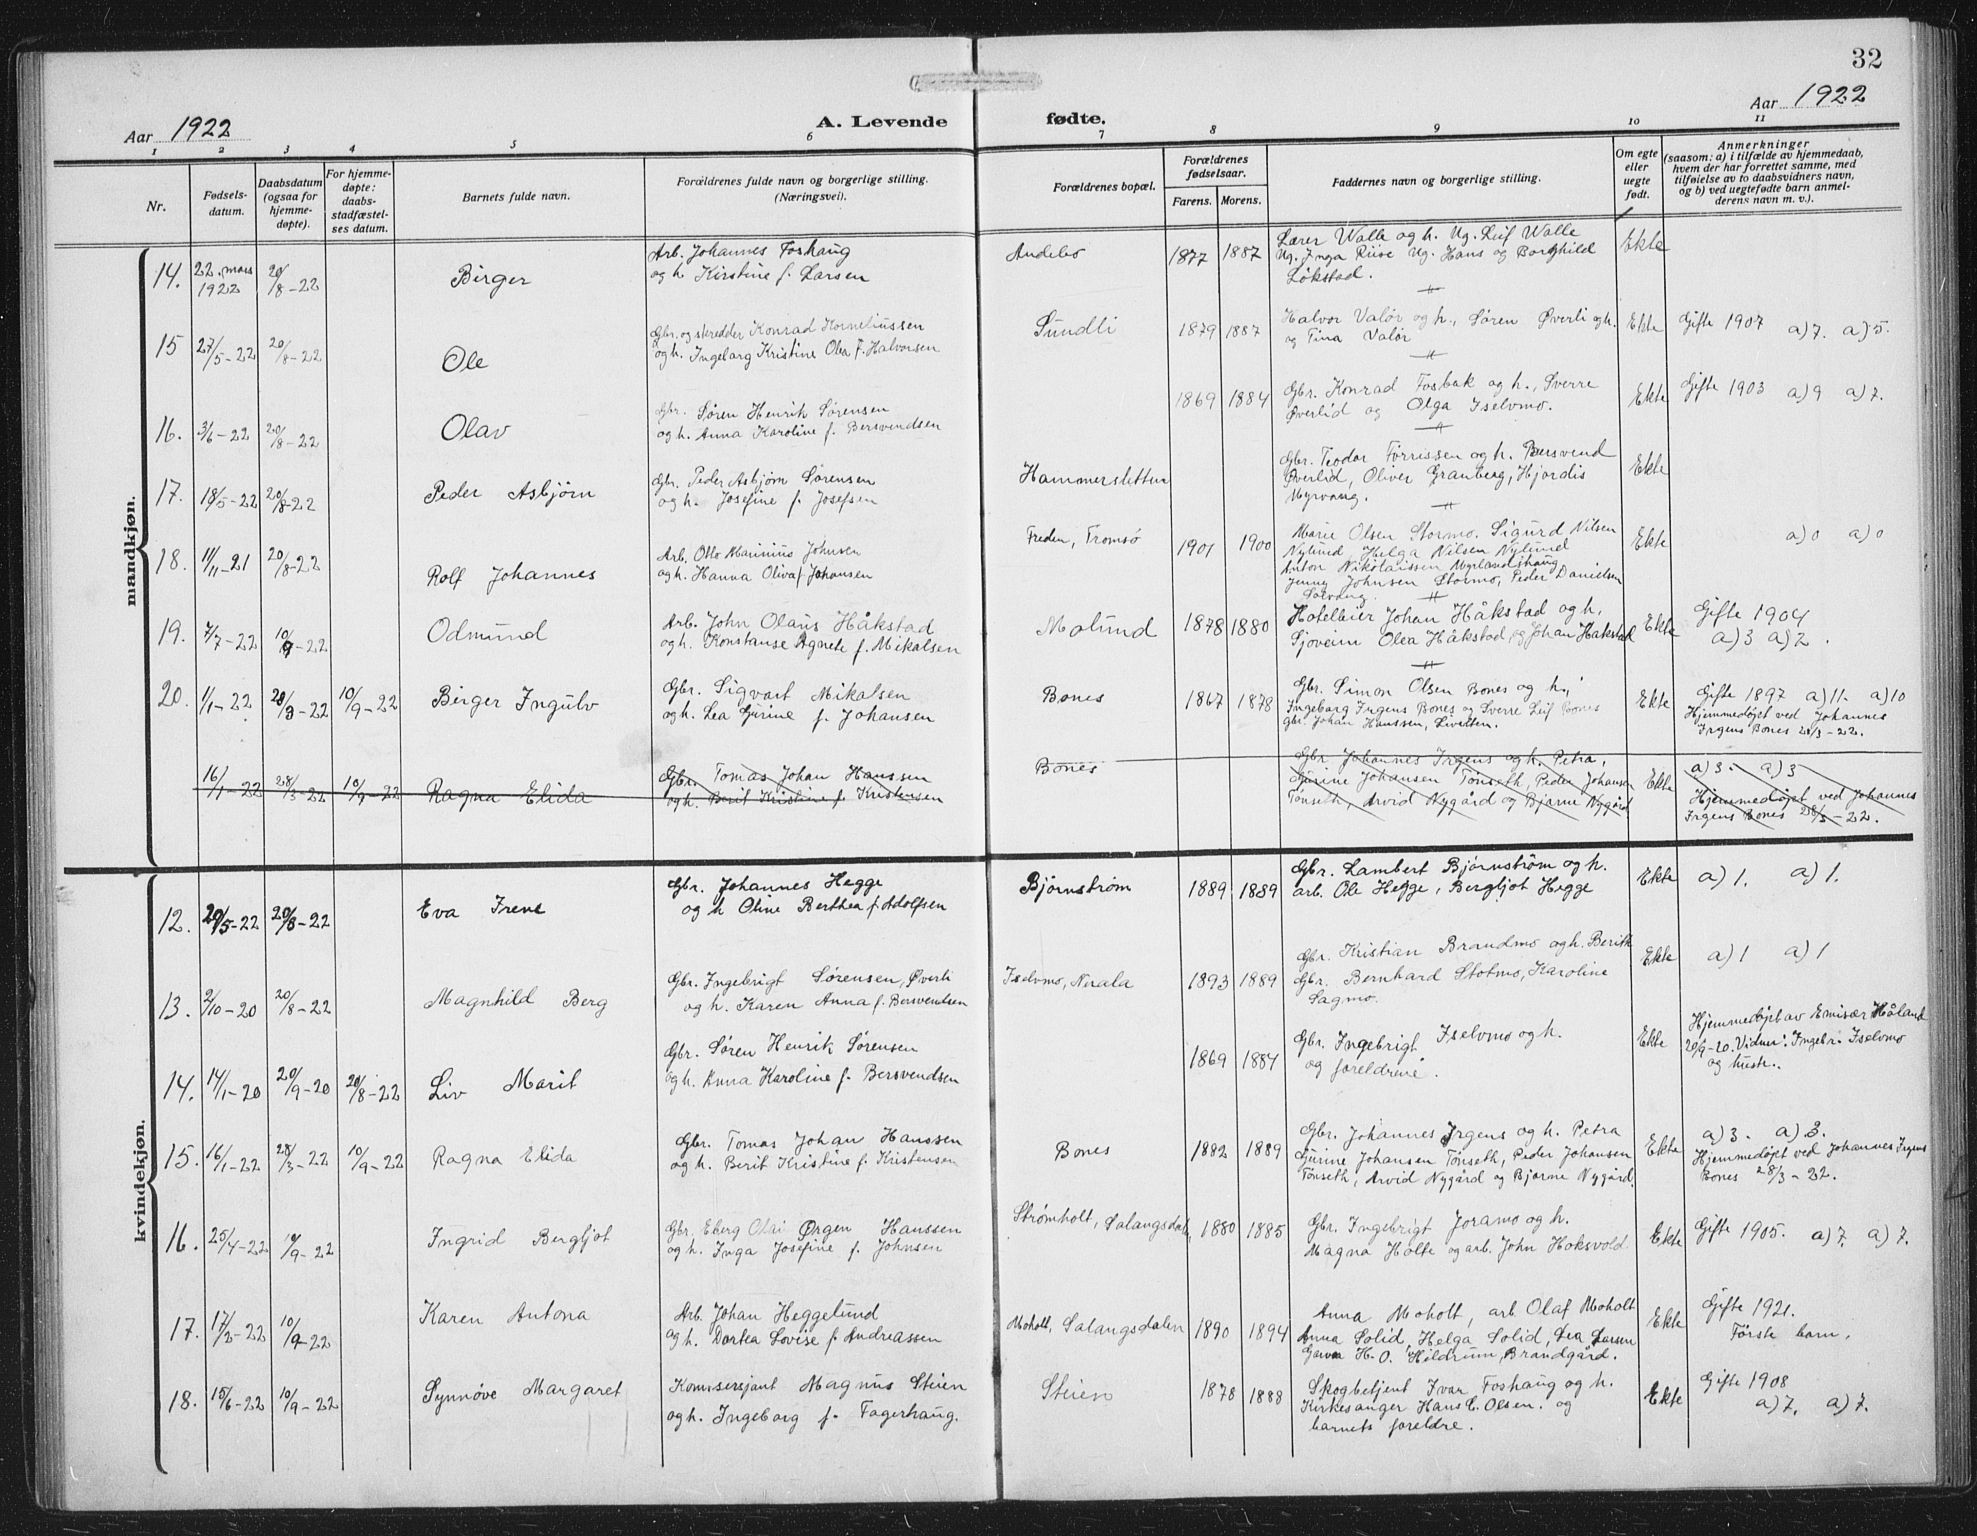 32
Aar 1922
Aar 1922
A. Levende fødte.
1 2 3 4 5 6 7 8 9 10 11
Nr.
Fødsels-
datum.
Daabsdatum
(ogsaa for
hjemme-
døpte).
For hjemme-
døpte:
daabs-
stadfæstel-
ses datum.
Barnets fulde navn.
Forældrenes fulde navn og borgerlige stilling.
(Næringsvei).
Forældrenes bopæl.
Forældrenes
fødselsaar.
Farens. Morens.
Faddernes navn og borgerlige stilling.
Om egte
eller
uegte
født.
Anmerkninger
(saasom: a) i tilfælde av hjemmedaab,
hvem der har forrettet samme, med
tilføielse av to daabsvidners navn,
og b) ved uegtefødte barn anmel-
derens navn m. v.).
mandkjøn.
14. 22. mars 1922 20/8-22 Birger
Arb. Johannes Foshaug
og h. Kirstine f. Larsen
Andebo 1877 1887
Lærer Walle og h. Ug. Leif Walle
Ug. Inga Riise Ug. Hans og Borghild
Løkstad.
Ekte
15 27/5-22 20/8-22 Ole
Gbr. og skredder Konrad Korneliussen
og h. Ingeborg Kristine Olea f. Halvorsen
Sundli 1879 1887
Halvor Valør og h., Søren Øverli og h.
og Tina Valør
Ekte Gifte 1907 a) 7. a) 5.
16. 3/6-22 20/8-22 Olav
Gbr. Søren Henrik Sørensen
og h. Anna Karoline f. Bersvendsen
1869 1884
Gbr. Konrad Fosbak og h., Sverre
Øverlid og Olga Iselvmo.
Ekte Gifte 1903 a) 9 a) 7.
17. 18/5-22 20/8-22 Peder Asbjørn
Gbr. Peder Asbjørn Sørensen
og h. Josefine f. Josefsen
Hammersletten
Gbr. Teodor Tørrissen og h. Bersvend
Øverlid, Oliver Granberg, Hjørdis
Myrvang.
Ekte
18. 11/11-21 20/8-22 Rolf Johannes
Arb. Otto Marinius Johnsen
og h. Hanna Oliva f. Johansen
Freden, Tromsø 1901 1900
Marie Olsen Stormo. Sigurd Nilsen
Nylund, Helga Nilsen Nylund
Anton Nikolaissen Myrlandshaug
Jenny Johnsen Stormo, Peder Danielsen
Sørvang.
Ekte a) 0 a) 0
19. 7/7-22 10/9-22 Odmund
Arb. John Olaus Håkstad
og h. Konstanse Agnete f. Mikalsen
Molund 1878 1880
Hotelleier Johan Håkstad og h.
Sjøveien Olea Håkstad, og Johan Håkstad
Ekte Gifte 1904
a) 3 a) 2.
20. 1/1-22 28/3-22 10/9-22 Birger Ingulv
Gbr. Sigvart Mikalsen
og h. Lea Gurine f. Johansen
Bones 1867 1878
Gbr. Simon Olsen Bones og h.,
Ingeborg Irgens Bones og Sverre Leif Bones
gbr. Johan Hanssen, Liveltten.
Ekte Gifte 1897 a) 11. a) 10
Hjemmedøpt ved Johannes
Irgens Bones 28/3-22.
16/1-22 28/3-22 10/9-22 Ragna Elida
Gbr. Tomas Johan Hanssen
og h. Berit Kristine f. Kristensen
Bones
Gbr. Johannes Irgens og h. Petra,
Gurine Johansen Tønseth, Peder Johansen
Tønseth, Arvid Nygård og Bjarne Nygård.
Ekte a) 3. a) 3
Hjemmedøpt ved Johannes
Irgens Bones 28/3-22.
kvindekjøn.
12. 20/5-22 20/8-22 Eva Irene
Gbr. Johannes Hegge
og h Oline Berthea f. Adolfsen
Bjørnstrøm 1889 1889
Gbr. Lambert Bjørnstrøm og h.
arb. Ole Hegge, Bergljot Hegge
Ekte a) 1. a) 1.
13. 2/10-20 20/8-22 Magnhild Berg
Gbr. Ingebrigt Sørensen, Øverli
og h. Karen Anna f. Bersvendsen
Iselvmo, Nerala 1893 1889
Gbr. Kristian Brandmo og h. Berith
Gbr. Bernhard Stotmo, Karoline
Sagmo.
Ekte a) 1 a) 1
14. 14/1-20 20/9-20 20/8-22 Liv Marit
Gbr. Søren Henrik Sørensen
og h. Anna Karoline f. Bersvendsen
1869 1884
Gbr. Ingebrigt Iselvmo og h.
og foreldrene.
Ekte Hjemmedøpt av Emisær Håland
20/9-20. Vidner: Ingebr. Iselvmo
og hustr.
15. 16/1-22 28/3-22 10/9-22 Ragna Elida
Gbr. Tomas Johan Hanssen
og h. Berit Kristine f. Kristensen
Bones 1882 1889
Gbr. Johannes Irgens og h. Petra
Gurine Johansen Tønseth, Peder Johansen
Tønseth, Arvid Nygård og Bjarne Nygård.
Ekte a) 3. a) 3.
Hjemmedøpt ved Johannes Irgens
Bones 28/3-22.
16. 25/4-22 10/9-22 Ingrid Bergljot
Gbr. Eberg Olai Ørgen Hanssen
og h. Inga Josefine f. Johnsen
Strømholt, Salangsdal, 1880 1885
Gbr. Ingebrigt Joramo og h.
Magna Holte og arb. John Hoksvold
Ekte Gifte 1905. a) 7. a) 7.
17. 17/2-22 10/9-22 Karen Antona
Arb. Johan Heggelund
og h. Dortea Lovise f. Andreassen
Moholt, Salangsdalen 1890 1894
Anna Moholt, arb. Olaf Moholt
Anna Solid, Helga Solid, Lea Larsen
H. O. Hildrum, Brandgård.
Ekte Gifte 1921.
Første barn.
18. 15/6-22 10/9-22 Synnøve Margaret
Komisersjant Magnus Steien
og h. Ingeborg f. Fagerhaug.
Steien 1878 1888
Skogbetjent Ivar Foshaug og h.
Kirkesanger Hans C. Olsen. og
barnets foreldre.
Ekte Gifte 1908
a) 7. a) 7.